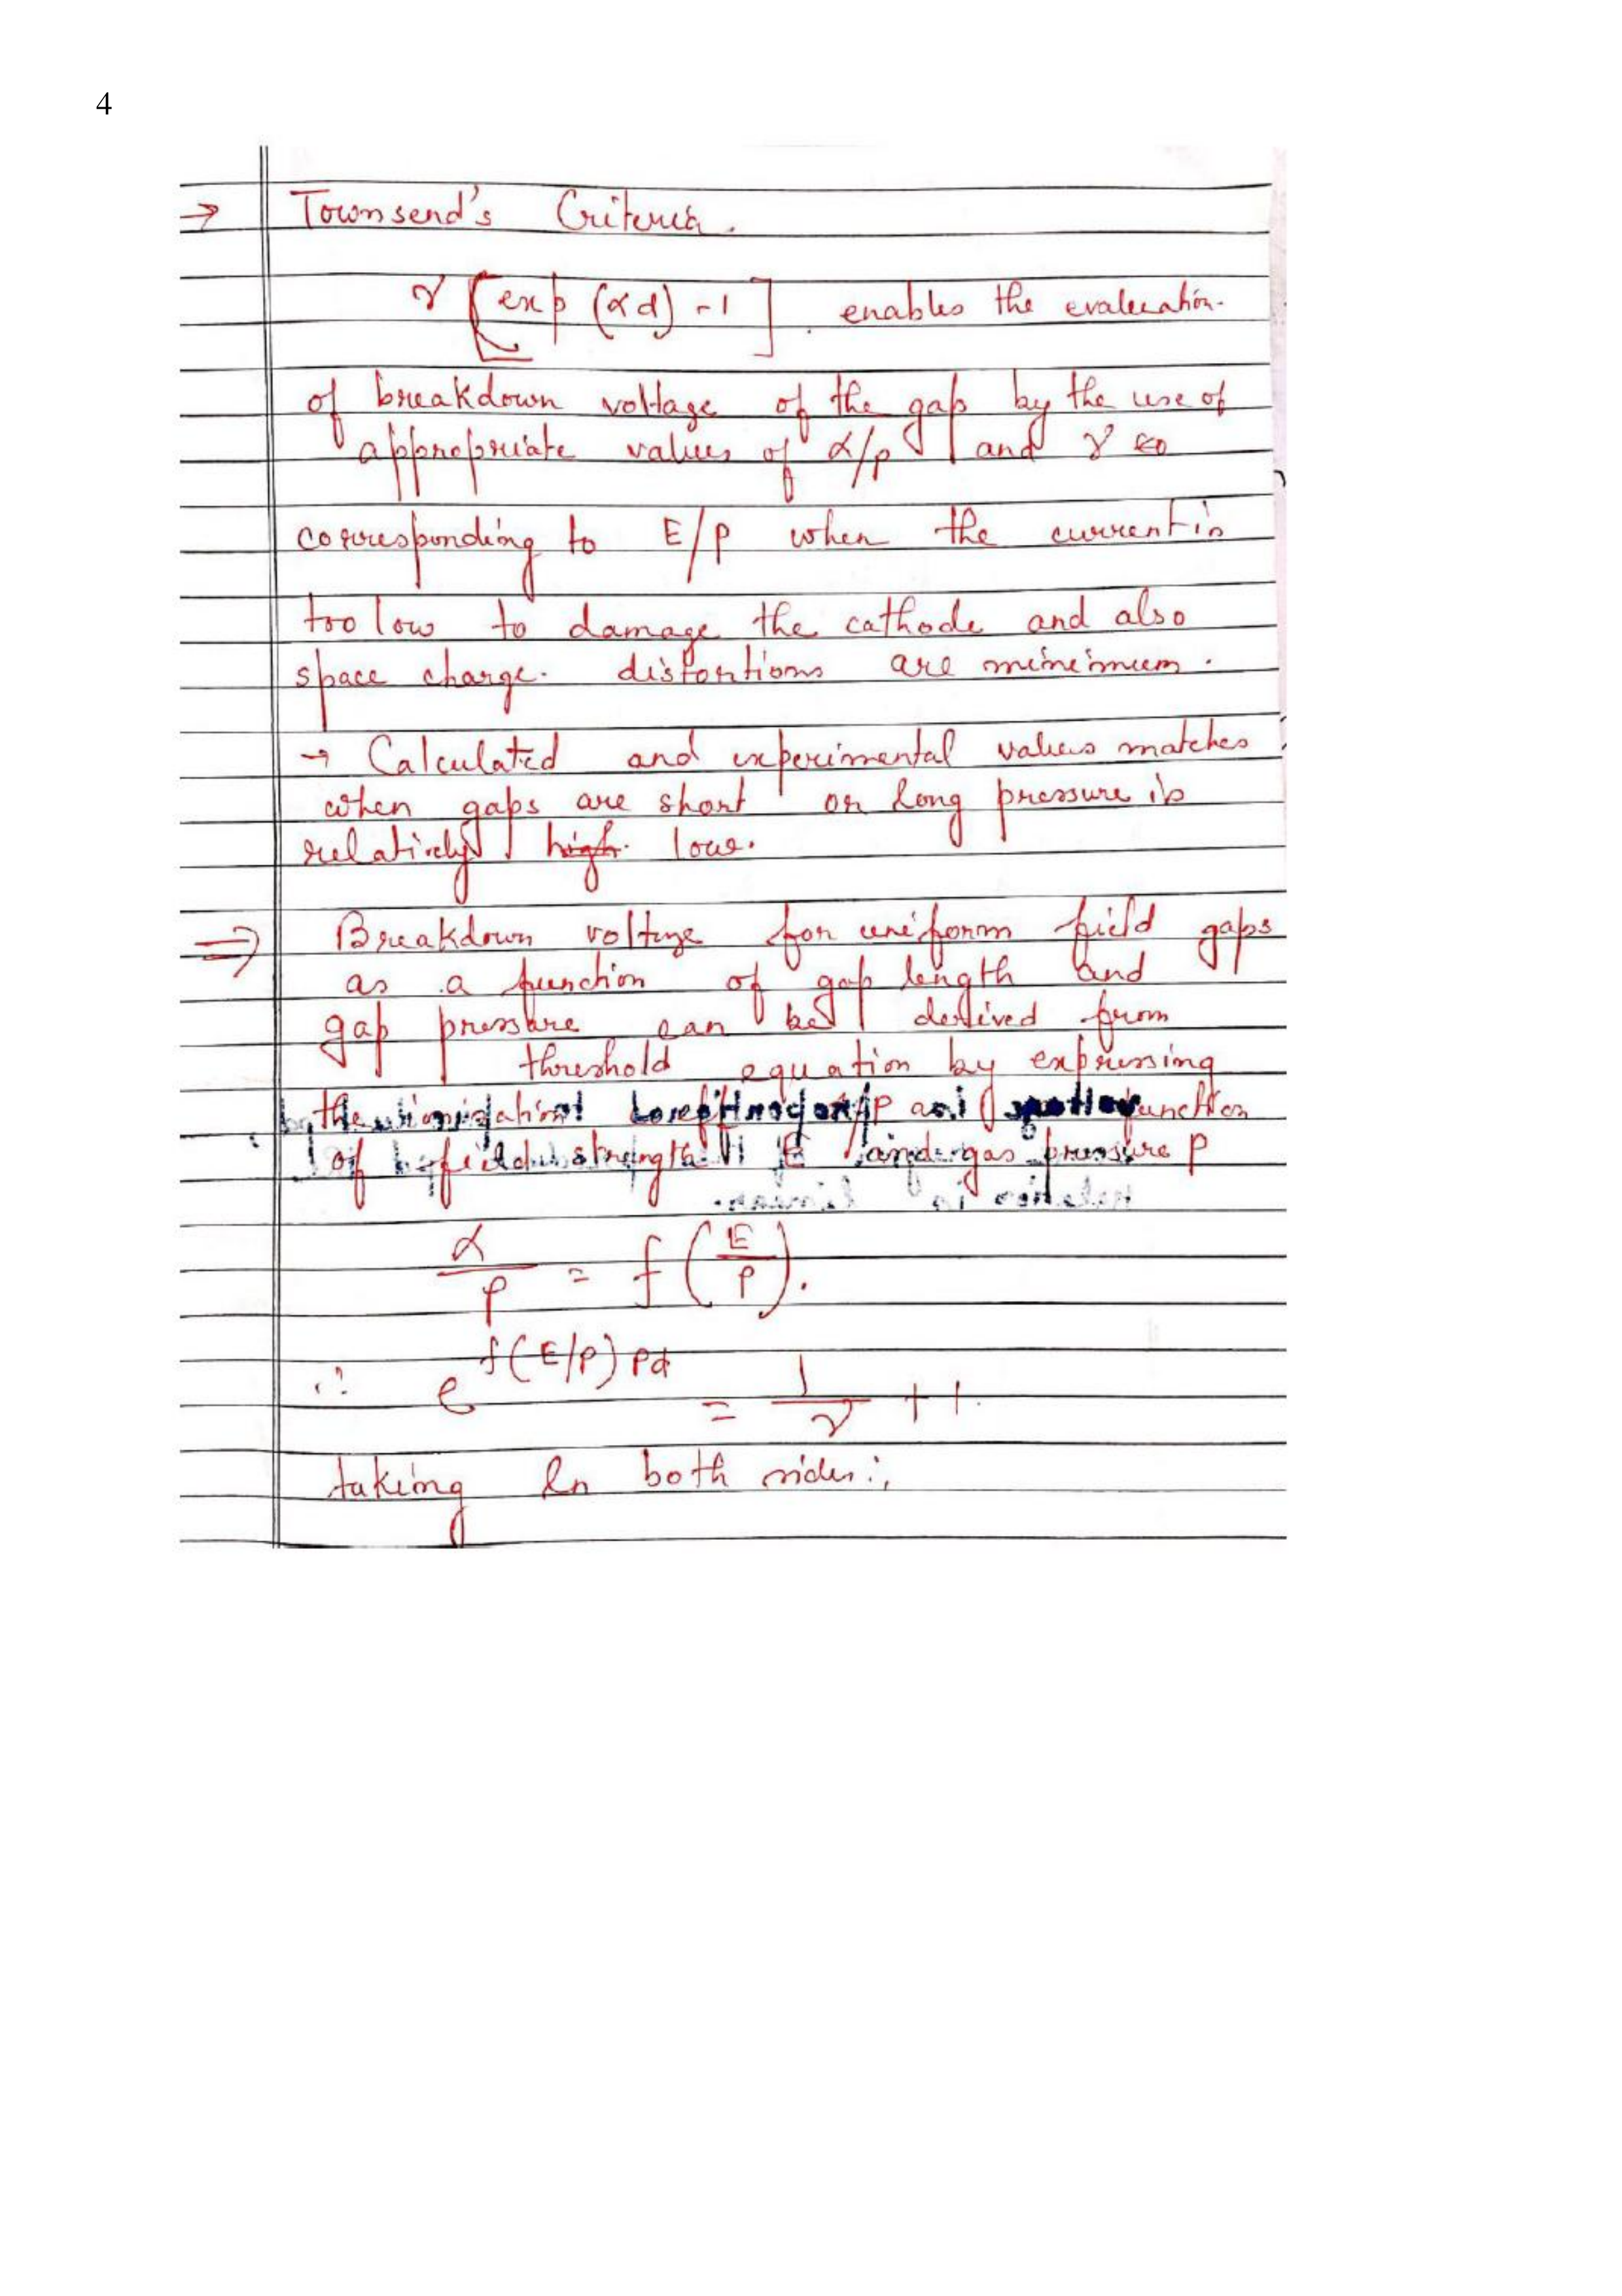 4
→ Townsend's Criteria.
γ [exp (αd) -1] enables the evaluation.
of breakdown voltage of the gap by the use of
appropriate values of α/p and γ
corresponding to E/p when the current is
too low to damage the cathode and also
space charge. distortions are minimum.
→ Calculated and experimental values matches
when gaps are short or long pressure is
relatively high. low.
⇒ Breakdown voltage for uniform field gaps
as a function of gap length and
gap pressure can be derived from
threshold equation by expressing
the function
of field strength E and gas pressure P
α/P = f(E/P).
∴ e^f(E/P) Pd = 1/γ + 1.
taking ln both sides:,